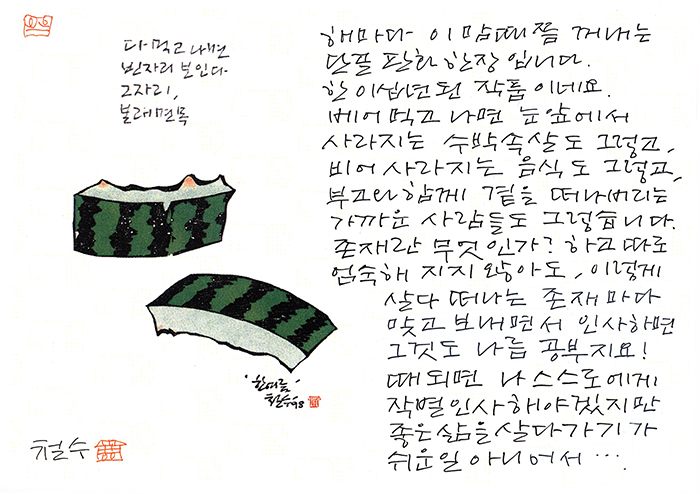 다 먹고 나면
빈자리 보인다
그자리,
본래면목
해마다 이맘때쯤 꺼내는
단골 판화 한장입니다.
한 이십년된 작품이네요.
베어먹고 나면 눈앞에서
사라지는 수박속살도 그렇고,
비어 사라지는 음식도 그렇고,
부고와 함께 곁을 떠나버리는
가까운 사람들도 그렇습니다.
존재란 무엇인가? 하고 따로
엄숙해 지지 않아도, 이렇게
살다 떠나는 존재마다
맞고 보내면서 인사하면
그것도 나름 공부지요!
때되면 나 스스로에게
작별인사해야겠지만
좋은 삶을 살다가기가
쉬운일 아니어서….
'한여름'
철수98
철수